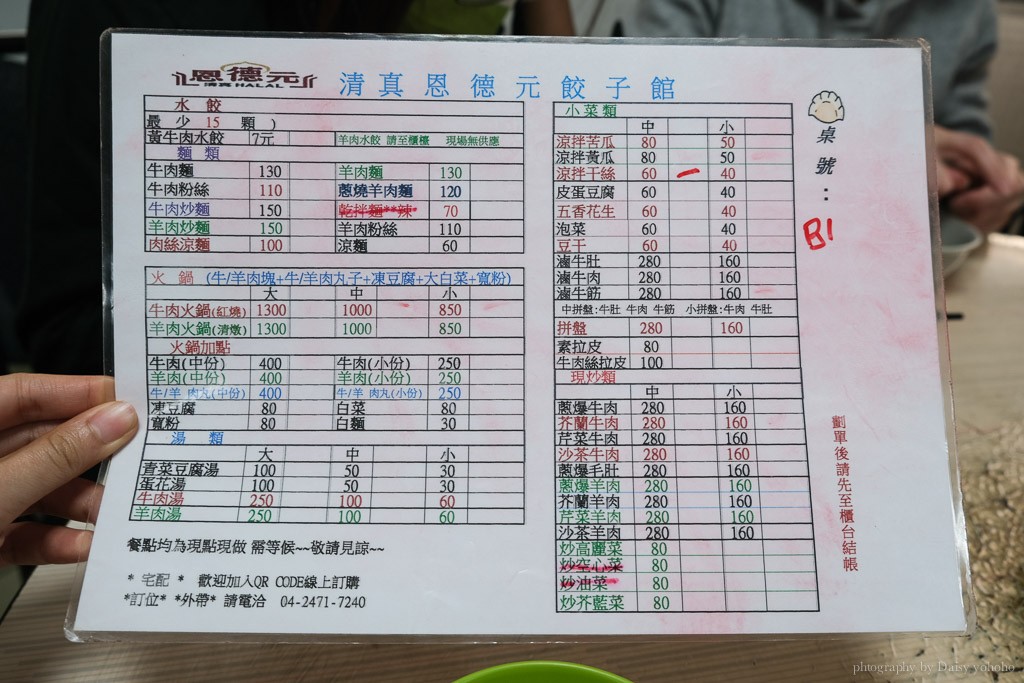 恩德元
清真 HALAL
清真恩德元餃子館
水 餃
最 少 15 顆 )
黃牛肉水餃 7元 羊肉水餃 請至櫃檯 現場無供應
麵 類
牛肉麵 130 羊肉麵 130
牛肉粉絲 110 蔥燒羊肉麵 120
牛肉炒麵 150 乾拌麵**辣* 70
羊肉炒麵 150 羊肉粉絲 110
肉絲涼麵 100 涼麵 60
火 鍋 (牛/羊肉塊+牛/羊肉丸子+凍豆腐+大白菜+寬粉)
大 中 小
牛肉火鍋(紅燒) 1300 1000 850
羊肉火鍋(清燉) 1300 1000 850
火鍋加點
牛肉(中份) 400 牛肉(小份) 250
羊肉(中份) 400 羊肉(小份) 250
牛/羊 肉丸(中份) 400 牛/羊 肉丸(小份) 250
凍豆腐 80 白菜 80
寬粉 80 白麵 30
湯 類
大 中 小
青菜豆腐湯 100 50 30
蛋花湯 100 50 30
牛肉湯 250 100 60
羊肉湯 250 100 60
餐點均為現點現做 需等候~~敬請見諒~~
* 宅配 * 歡迎加入QR CODE線上訂購
*訂位* *外帶* 請電洽 04-2471-7240
小菜類
中 小
涼拌苦瓜 80 50
涼拌黃瓜 80 50
涼拌干絲 60 40
皮蛋豆腐 60 40
五香花生 60 40
泡菜 60 40
豆干 60 40
滷牛肚 280 160
滷牛肉 280 160
滷牛筋 280 160
中拼盤:牛肚 牛肉 牛筋 小拼盤:牛肉 牛肚
拼盤 280 160
素拉皮 80
牛肉絲拉皮 100
現炒類
中 小
蔥爆牛肉 280 160
芥蘭牛肉 280 160
芹菜牛肉 280 160
沙茶牛肉 280 160
蔥爆毛肚 280 160
蔥爆羊肉 280 160
芥蘭羊肉 280 160
芹菜羊肉 280 160
沙茶羊肉 280 160
炒高麗菜 80
炒空心菜 80
炒油菜 80
炒芥藍菜 80
桌號:
B1
劃單後請先至櫃台結帳
phtography by Daisy yohoho